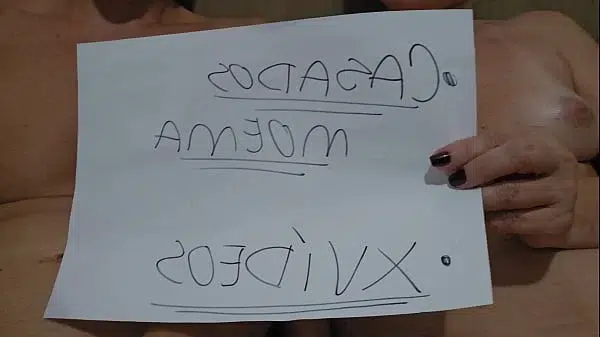 • CASADOS
MOEMA
• XVIDEOS